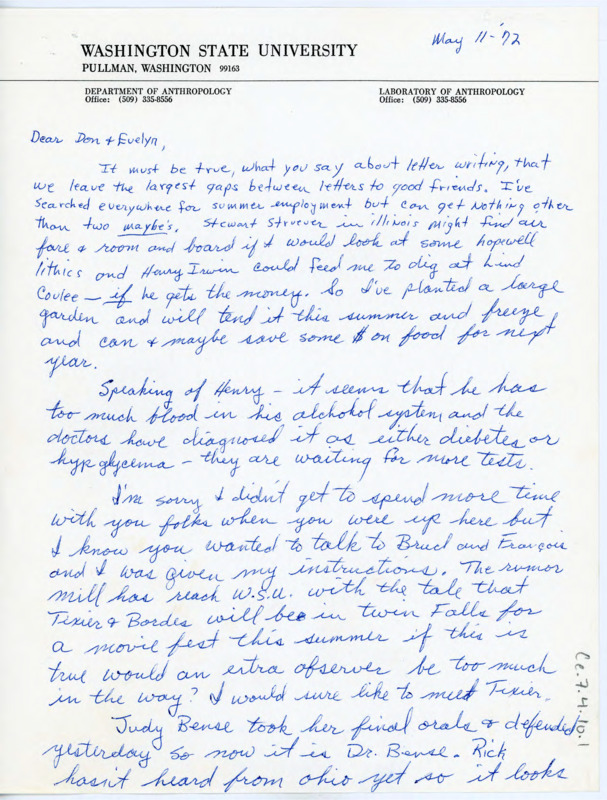 May 11-'72
WASHINGTON STATE UNIVERSITY
PULLMAN, WASHINGTON 99163
DEPARTMENT OF ANTHROPOLOGY
Office: (509) 335-8556
LABORATORY OF ANTHROPOLOGY
Office: (509) 335-8556
Dear Don & Evelyn,
It must be true, what you say about letter writing, that
we leave the largest gaps between letters to good friends. I've
searched everywhere for summer employment but can get nothing other
than two maybe's. Stewart Struever in illinois might find air
fare & room and board if I would look at some hopewell
lithics and Henry Irwin could feed me to dig at Lind
Coulee – if he gets the money. So I've planted a large
garden and will tend it this summer and freeze
and can & maybe save some $ on food for next
year.
Speaking of Henry – it seems that he has
too much blood in his alchohol system, and the
doctors have diagnosed it as either diebetes or
hypglycema – they are waiting for more tests.
I'm sorry I didn't get to spend more time
with you folks when you were up here but
I know you wanted to talk to Brucl and François
and I was given my instructions. The rumor
mill has reach W.S.U. with the tale that
Texier & Bordes will be in twin Falls for
a movie fest this summer if this is
true would an extra observer be too much
in the way? I would sure like to meet Texier.
Judy Bense took her final orals & defended
yesterday so now it is Dr. Bense. Rick
hasn't heard from ohio yet so it looks
Cc.7.4.10.1